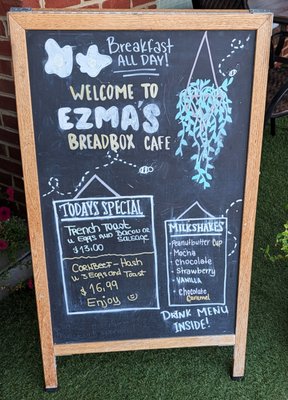 Breakfast
ALL DAY!
WELCOME TO
EZMA'S
BREADBOX CAFE
TODAYS SPECIAL
French Toast
w Eggs AND BACON OR
SAUSAGE
$13.00
CORNBEEF-Hash
w 3 Eggs and Toast
$16.99
Enjoy
MILKSHAKES
Peanutbutter Cup
Mocha
Chocolate
Strawberry
VANILLA
Chocolate
Caramel
DRINK MENU
INSIDE!